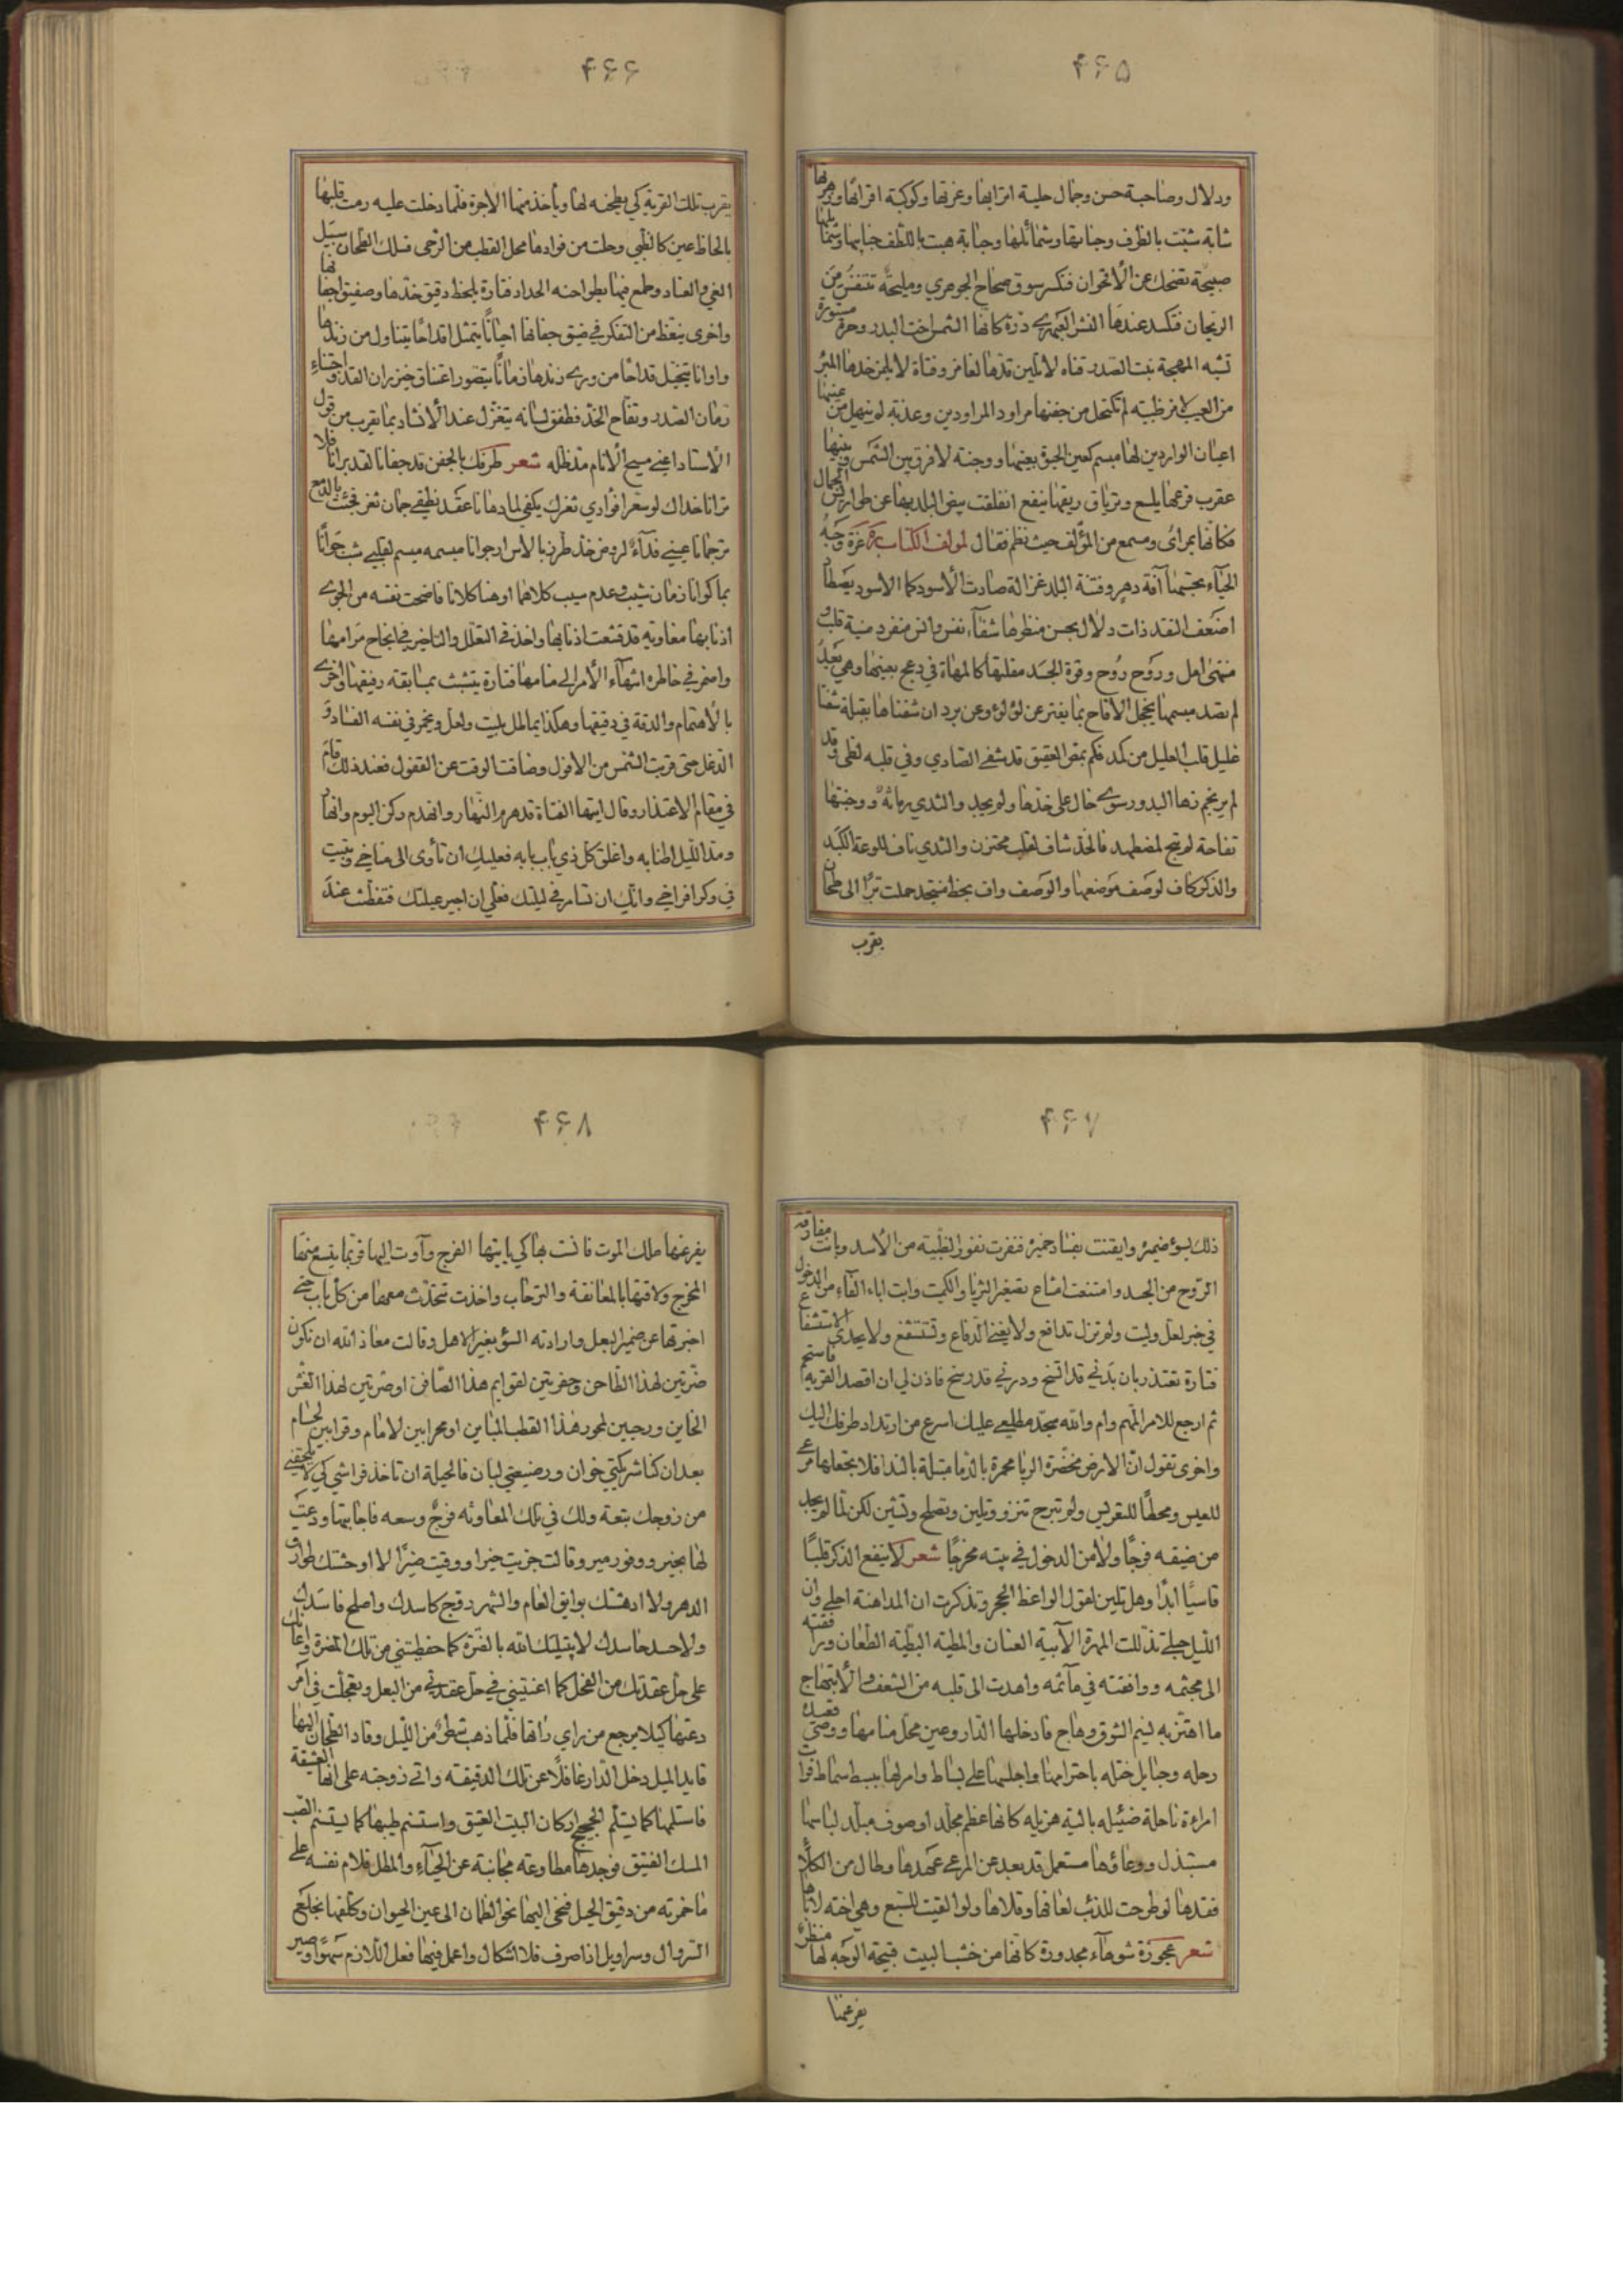 ۴۶۵
ودلال وصاحبة حسن وجمال حلية اترابها وغرتها وكوكبة اقرانها وزهرتها
شابة شبّت بالظرف وجناتها وشمائلها وجنابة هبت باللطف جنايبها وشمائلها
صبيحة تضحك عن الأقحوان فتكسر سوق صحاح الجوهري ومليحة تتنفس من
الريحان فتكسد عندها النشر العبهري درة كانها الشمس اخت البدر وحرة مستورة
تشبه المهجة بنت الصدر قناه لا تلين قدها لغامز وفتاة لا يلمز خدها المبرّ
من العيب لامز ظبية لم تكتحل من جفنها مراود المراودين وعذبة لم ينهل من عينها
اعيان الواردين لها مبسم كعين الحيوة بعينها ووجنة لا فرق بين الشمس وبينها
عقرب فرعها يلسع وترياق ريقها ينفع انفلقت بيض البلد بها عن طواويس الجمال
فكانها بمرأى ومسمع من المؤلف حيث نظم فقال لمولف الكتاب غرة وجه
الحياء بجسمها آفة دهر وفتنة البلد غزالة صادت الأسود كما الاسود يصطاد
اضعف النقد ذات دلال بحسن منظرها شفاء نفس وانس منفرد منية قلب و
منتهى امل وروح روح وقرة الجسد مقلتها كالمهاة في دعج بعينها وهي بعد
لم تصد مبسمها يخجل الأقاح بما يفتر عن لؤلؤ وعن برد ان شفتاها بقبلة شفتا
غليل قلب العليل من كمد فكم بمص العقيق قد شفي الصادي وفي قلبه لظى وقد
لم ير نجم زها البدور سوى خال على خدها ولم يجد والثدي رمانة ووجنتها
تفاحة لم تبح لمضطهد فالخد شاف لقلب محتزن والثدي ناف للوعة الكبد
والذكر كاف لوصف موضعها والوصف واف بحظ منتجد حملت برّا الى طحان
يقرب
۴۶۶
يقرب تلك القرية كي يطحنه لها ويأخذ منها الاجرة فلما دخلت عليه رمت قلبها
بالحاظ عين كالظبي وحلت من فوادها محل القطب من الرحى فسلك الطحان سبيل
الغي والعناد وطمع فيها بطواحنه الحداد فتارة يلحظ دقيق خدها وصفيق اجفانها
واخرى يتعظ من التفكر في ضيق جفانها احيانًا يتمثل اقداحًا يتناول من زندها
واوانا يتخيل قداحًا من وري زندها زمانًا يتصور اعتناق خيزران القد واجتناء
رمان الصدر وتفاح الخد فطفق لسانه يتغزل عند الأنشاد بما يقرب من قول
الأستاد اعني مسيح الأنام مد ظله شعر طرفك بالجفن قد جفانا فلا
ترانا خداك لو سعرا فوادي ثغرك يكفي لما دهانا عقد نطقي جمان ثغر فجئت بالدمع
ترجمانا عيني فداء لروض خد طرز بالاس ارجوانا مبسمه ميسم لقلبي شب جوانًا
بما كوانا زمان شيب وعدم سيب كلاهما اوهنا كلانا فاضحت نفسه من الجوى
اذنابها مغاويه قد قنعت اذنابها واخذ في التعلل والتاخير في انجاح مرامها
واضمر في خاطره انتهاء الأمر الى منامها فتارة يتشبث بمسابقه رفيقها واخرى
بالأهتمام والدقة في دقيقها وهكذا يماطل بليت ولعل ويخمر في نفسه الفساد و
الدغل حتى قربت الشمس من الافول وضاقت الوقت عن القفول فعند ذلك قام
في مقام الاعتذار وقال ايتها الفتاة قد هرم النهار وانهدم ركن اليوم وانهار
ومد الليل اطنابه واغلق كل ذي باب بابه فعليك ان تأوى الى مناخي وتبيت
في وكر افراخي واليك ان تسامر في ليلتك فعلي ان اجبر عيلتك فتفطنت عند
۴۶۷
ذلك بسوء ضميره وايقنت بفساد خميره فنفرت نفور الظبية من الأسد وبانت مفارقة
الروح من الجسد وامتنعت امتناع تصغير الثريا والكميت وابت اباء الفاء من الدخول
في خبر لعل وليت ولم تزل تدافع ولا يغني الدفاع وتستشفع ولا يجدى الاستشفاع
فتارة تعتذر بان بدني قد اتسخ ودرني قد رسخ فاذن لي ان اقصد القرية فاستحم
ثم ارجع للامر المهم وام والله تجد مطلعي عليك اسرع من ارتداد طرفك اليك
واخرى تقول ان الارض مخضرة الربا محمرة بالدما مبتلة بالندا فلا تجعلها مرعى
للعيس ومحطًا للتعريس ولم تبرح تنزو وتلين وتصلح وتشين لكن لما لم يجد
من ضيقه فرجًا ولا من الدخول في بيته مخرجًا شعر لا ينفع الذكر قلبًا
قاسيًا ابدًا وهل يلين لقول الواعظ الحجر وتذكرت ان المداهنة اجلى وان
الليل حبلى تذللت المهرة الآبية العنان والمطية البطية الطعان ورافقته
الى مجثمه ووافقته في مآثمه واهدت الى قلبه من الشغف والأبتهاج
ما اهتز به نسيم الشوق وهاج فادخلها الدار وعين محل منامها ووصى قعيدة
رحله وحبايل ختله باحترامها واجلسها على بساط وامر لها ببسط سماط فرات
امراءة ناحلة ضئيله بالية هزيله كانها عظم مجلد او صوف مبلد لباسها
مستبذل ووعاؤها مستعمل قد بعد عن المرعى عهدها وطال من الكلأ
فقدها لو طرحت للذئب لعافها وقلاها ولو القيت للسبع وهي اخته لاباها
شعر عجوزة شوهاء مجدورة كانها من خشب البيت قبيحة الوجه لها منظر
يفزعنا
۴۶۸
يفزعنها ملك الموت فانست بها كي ياتيها الفرج وآوت اليها فربما يتسع منها
المخرج ولاقتها بالمعانقة والترحاب واخذت تتحدث معها من كل باب حتى
اخبرتها عن ضمير البعل وارادته السؤ بغير الاهل وقالت معاذ الله ان نكون
ضرتين لهذا الطاحن وحفرتين لقوايم هذا الصافن اوضرتين لهذا الغش
الخاين ورحيين لمحور هذا القطب المباين او محرابين لامام وقرابين لحسام
بعد ان كنا شريكتي خوان ورضيعتي لبان فالحيلة ان تاخذ فراشي كي لا يلحقني
من زوجك تبعة ولك في تلك المعاونه فرج وسعه فاجابتها ودعت
لها بخير ووفور مير وقالت جزيت خيرا ووقيت ضيرًا لا اوحشتك طوارق
الدهر ولا ادهشتك بوايق العام والشهر روج كاسدك واصلح فاسدك
ولا حسد حاسدك لا يبتليك الله بالضرة كما حفظتني من تلك المضرة واعانك
على حل عقدتك من الفحل كما اعنتيني في حل عقدتي من البعل وتعجلت في امر
دعتها كيلا يرجع من راي راتها فلما ذهب شطر من الليل وقاد الطحان اليها
قايد الميل دخل الدار غافلًا عن تلك الدقيقه واتى زوجته على انها العشيقة
فاستلمها كما يستلم الحجيج اركان البيت العتيق واستنسم طيبها كما يستنسم الصب
المسك الفتيق فوجدها مطاوعه مجانبة عن الحياء والمطل فلام نفسه على
ما خمرته من دقيق الحيل فنحى اليها نحو الظمآن الى عين الحيوان وكلفها بخلع
السروال وسراويل اذا صرف فلا اشكال واعمل فيها فعل اللازم سموًا وصير